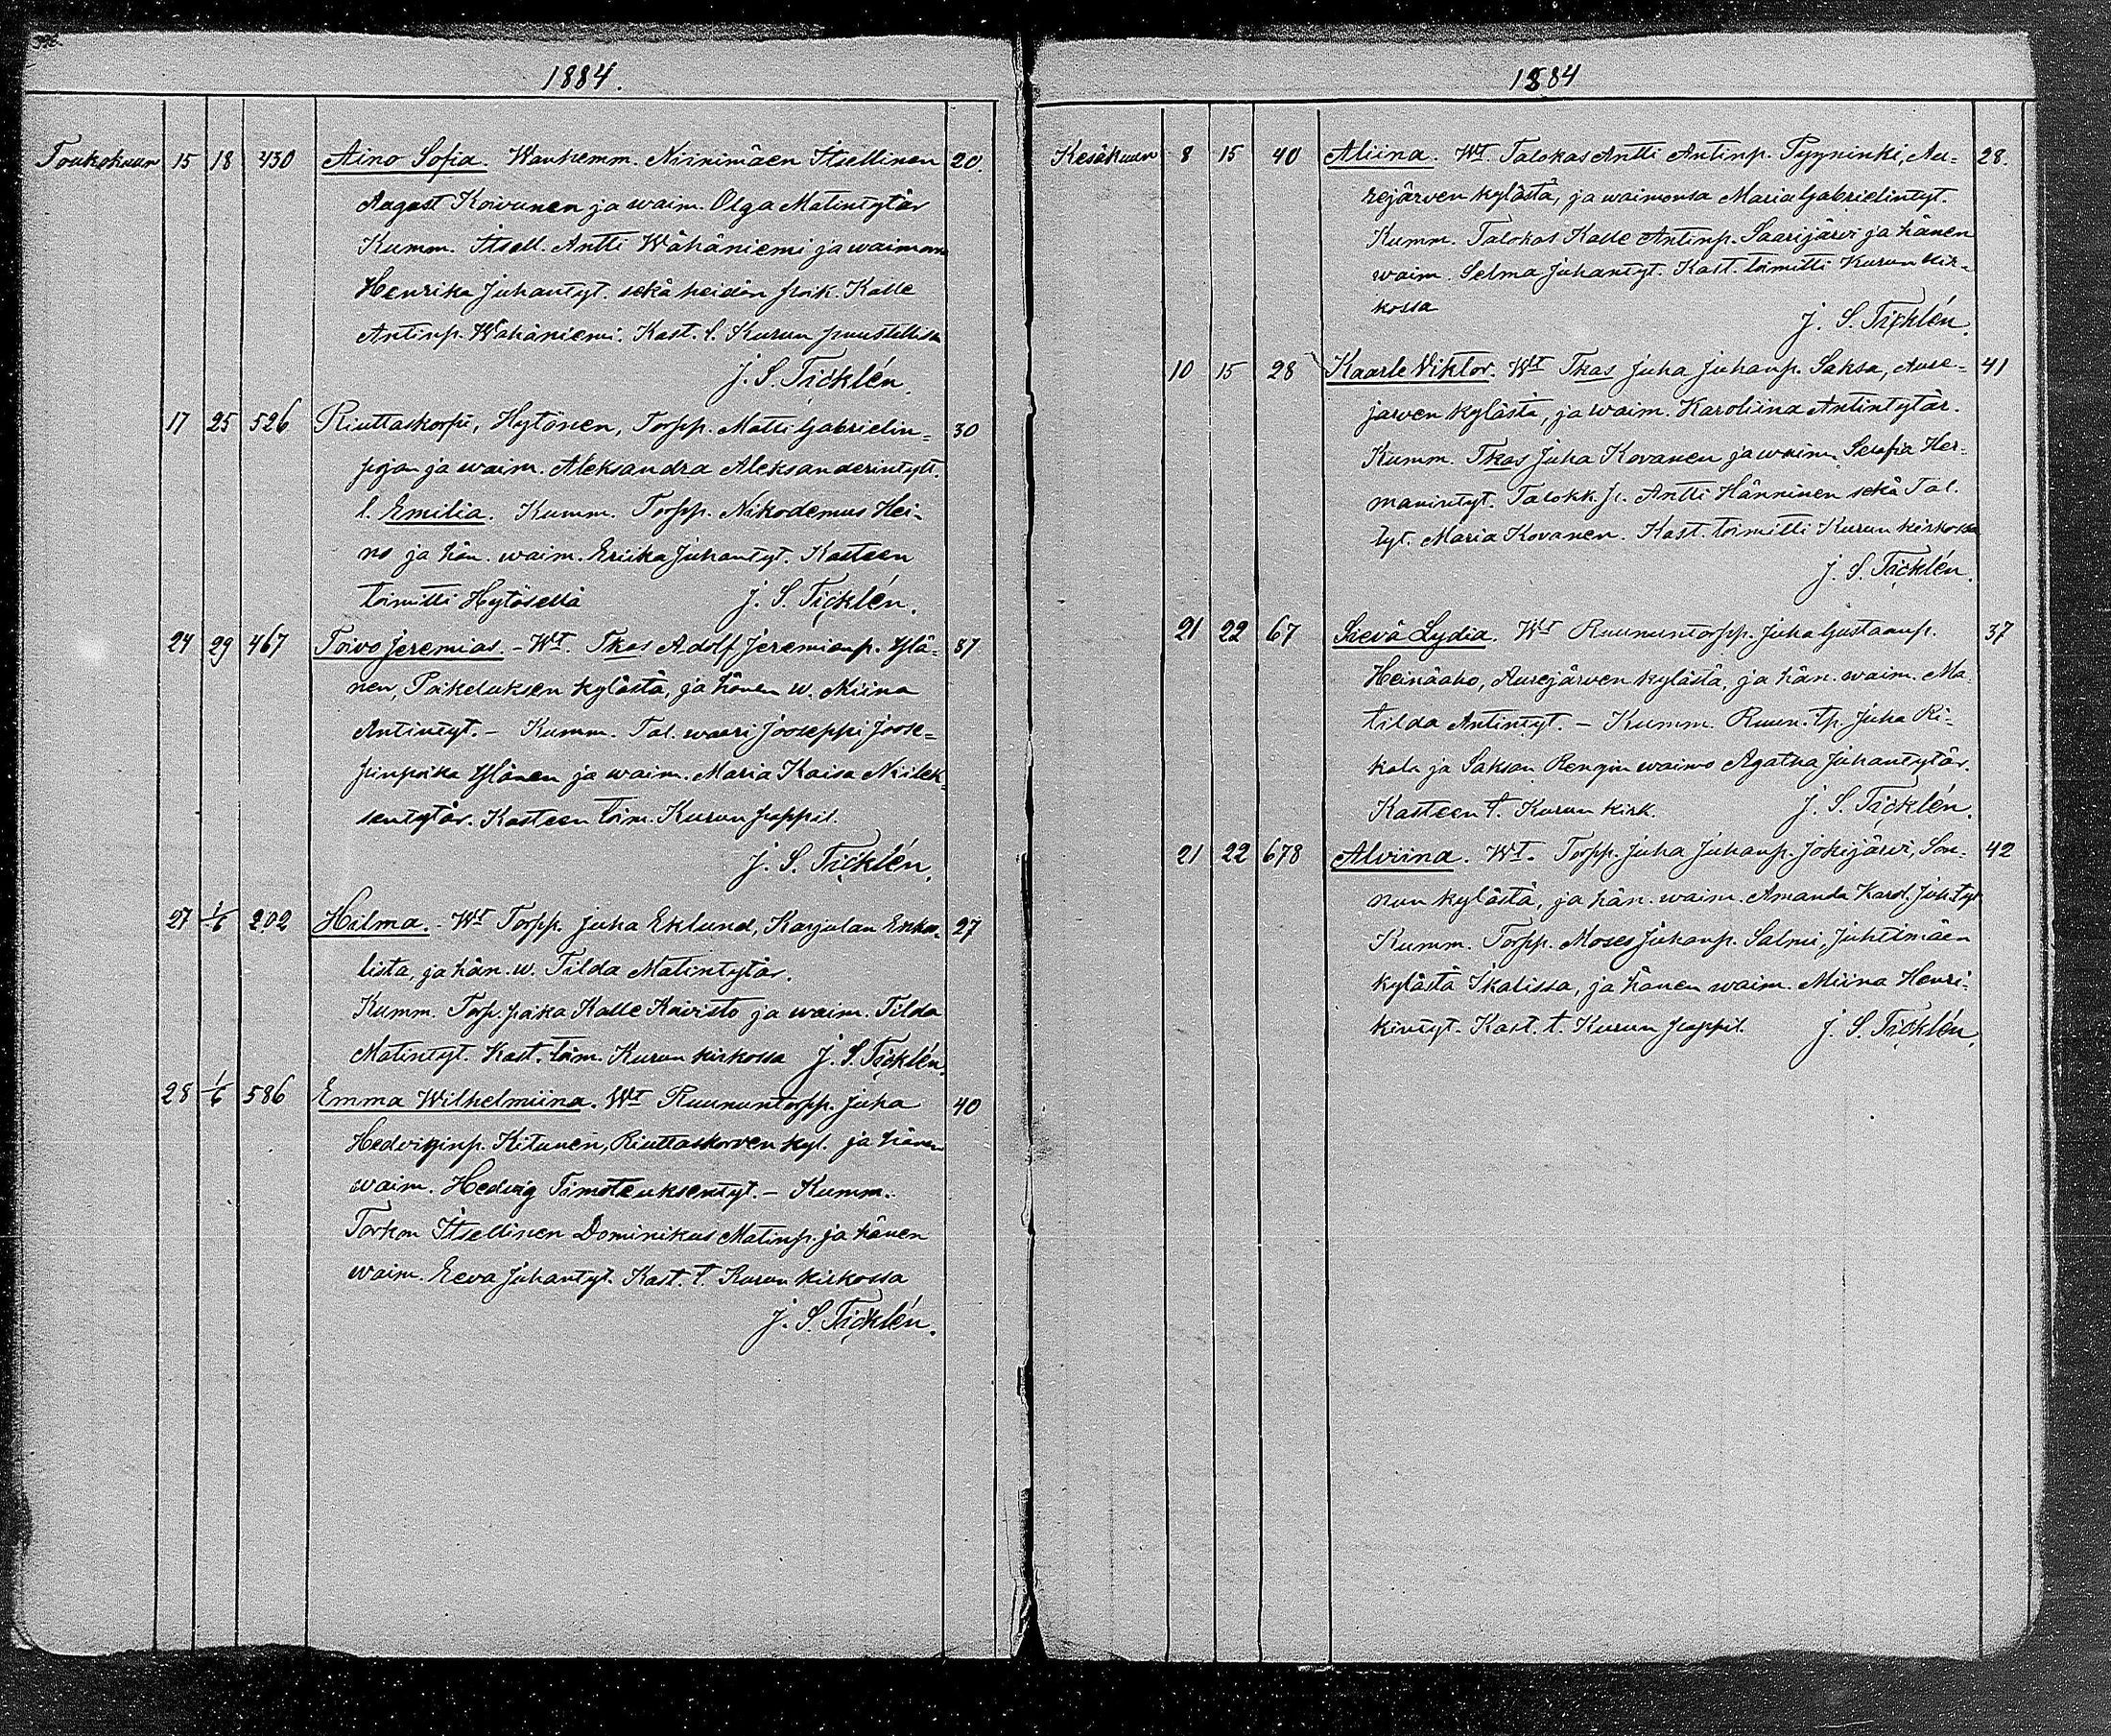 1884.
Toukokuun 15 18 430 Aino Sofia. Wanhemm. Niinimäen Itsellinen 20.
August Koivunen ja waim. Olga Matintytär
Kumm. Itsell. Antti Wähäniemi ja waimons
Henrika Juhantyt. sekä heidän poik. Kalle
Antinp. Wähäniemi. Kast. t. Kurun puustellissa
J. S. Ticklén.
17 25 526 Riuttaskorpi, Hytönen, Torpp. Matti Gabrielin= 30
pojan ja waim. Aleksandra Aleksanderintytt.
l. Emilia. Kumm. Torpp. Nikodemus Hei-
no ja hän. waim. Eriika Juhantyt. Kasteen
toimitti Hytösellä J. S. Ticklén.
24 29 467 Toivo Jeremias. - Wt. Tkas Adolf Jeremianp. Ylä= 37
nen, Poikeluksen kylästä, ja hänen w. Miina
Antintyt. - Kumm. Tal. waari Jooseppi Joose=
pinpoika Ylänen ja waim. Maria Kaisa Niilek-
sentytär. Kasteen toim. Kurun pappil.
J. S. Ticklén.
27 1/6 202 Hilma. - Wt Torpp. Juha Eklund, Karjulan 27
lista, ja hän. w. Tilda Matintytär.
Kumm. Torp. poika Kalle Koivisto ja waim. Tilda
Matintyt. Kast. toim. Kurun kirkossa J. S. Ticklén.
28 1/6 586 Emma Wilhelmiina. Wt Ruununtorpp. Juha 40
Hedviginp. Kitunen, Riuttaskorven kyl. ja hänen
waim. Hedvig Timoteuksentyt. - Kumm.
Torkon Itsellinen Dominikus Matinp. ja hänen
waim. Eeva Juhantyt. Kast. t. Kurun kirkossa
J. S. Ticklén.
1884
Kesäkuun 8 15 40 Aliina. Wt. Talokas Antti Antinp. Pyyninki, Au= 28.
rejärven kylästä, ja waimonsa Maria Gabrielintyt.
Kumm. Talokas Kalle Antinp. Saarijärvi ja hänen
waim. Selma Juhantyt. Kast. toimitti Kurun kir-
kossa
J. S. Ticklén.
10 15 28 Kaarle Viktor. Wt Tkas Juha Juhanp. Saksa, Aure= 41
järven kylästä, ja waim. Karoliina Antintytär.
Kumm. Tkas Juha Kovanen ja waim. Serafia Her-
manintyt. Talokk. p. Antti Hänninen sekä Tal.
tyt. Maria Kovanen. Kast. toimitti Kurun kirkossa
J. S. Ticklén.
21 22 67 Sievä Lydia. Wt Ruununtorpp. Juha Gustaanp. 37
Heinäaho, Aurejärven kylästä, ja hän. waim. Ma-
tilda Antintyt. - Kumm. Ruun. tp. Juha Ri-
kala ja Saksan Rengin waimo Agatha Juhantytär.
Kasteen t. Kurun kirk. J. S. Ticklén.
21 22 678 Alviina. Wt. Torpp. Juha Juhanp. Jokijärvi, Son- 42
nun kylästä, ja hän. waim. Amanda Karol. Juh.tyt
Kumm. Torpp. Moses Juhanp. Salmi, Juhtimäen
kylästä Ikalissa, ja hänen waim. Miina Henri-
kintyt. Kast. t. Kurun pappil. J. S. Ticklén.